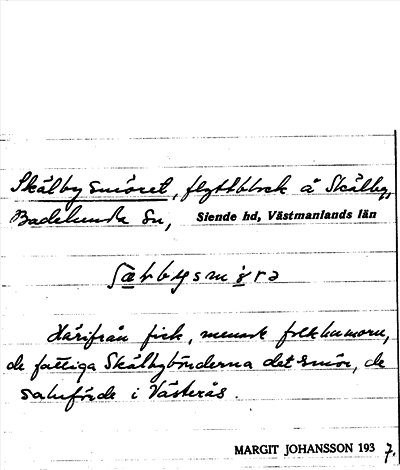 Skälby smöret, flyttblock å Skälby,
Badelunda sn, Siende hd, Västmanlands län
ʃæ̱ḷbysmø̱rə
Härifrån fick, menade folkhumorn,
de fattiga Skälbybönderna det smör, de
saluförde i Västerås.
MARGIT JOHANSSON 1937.